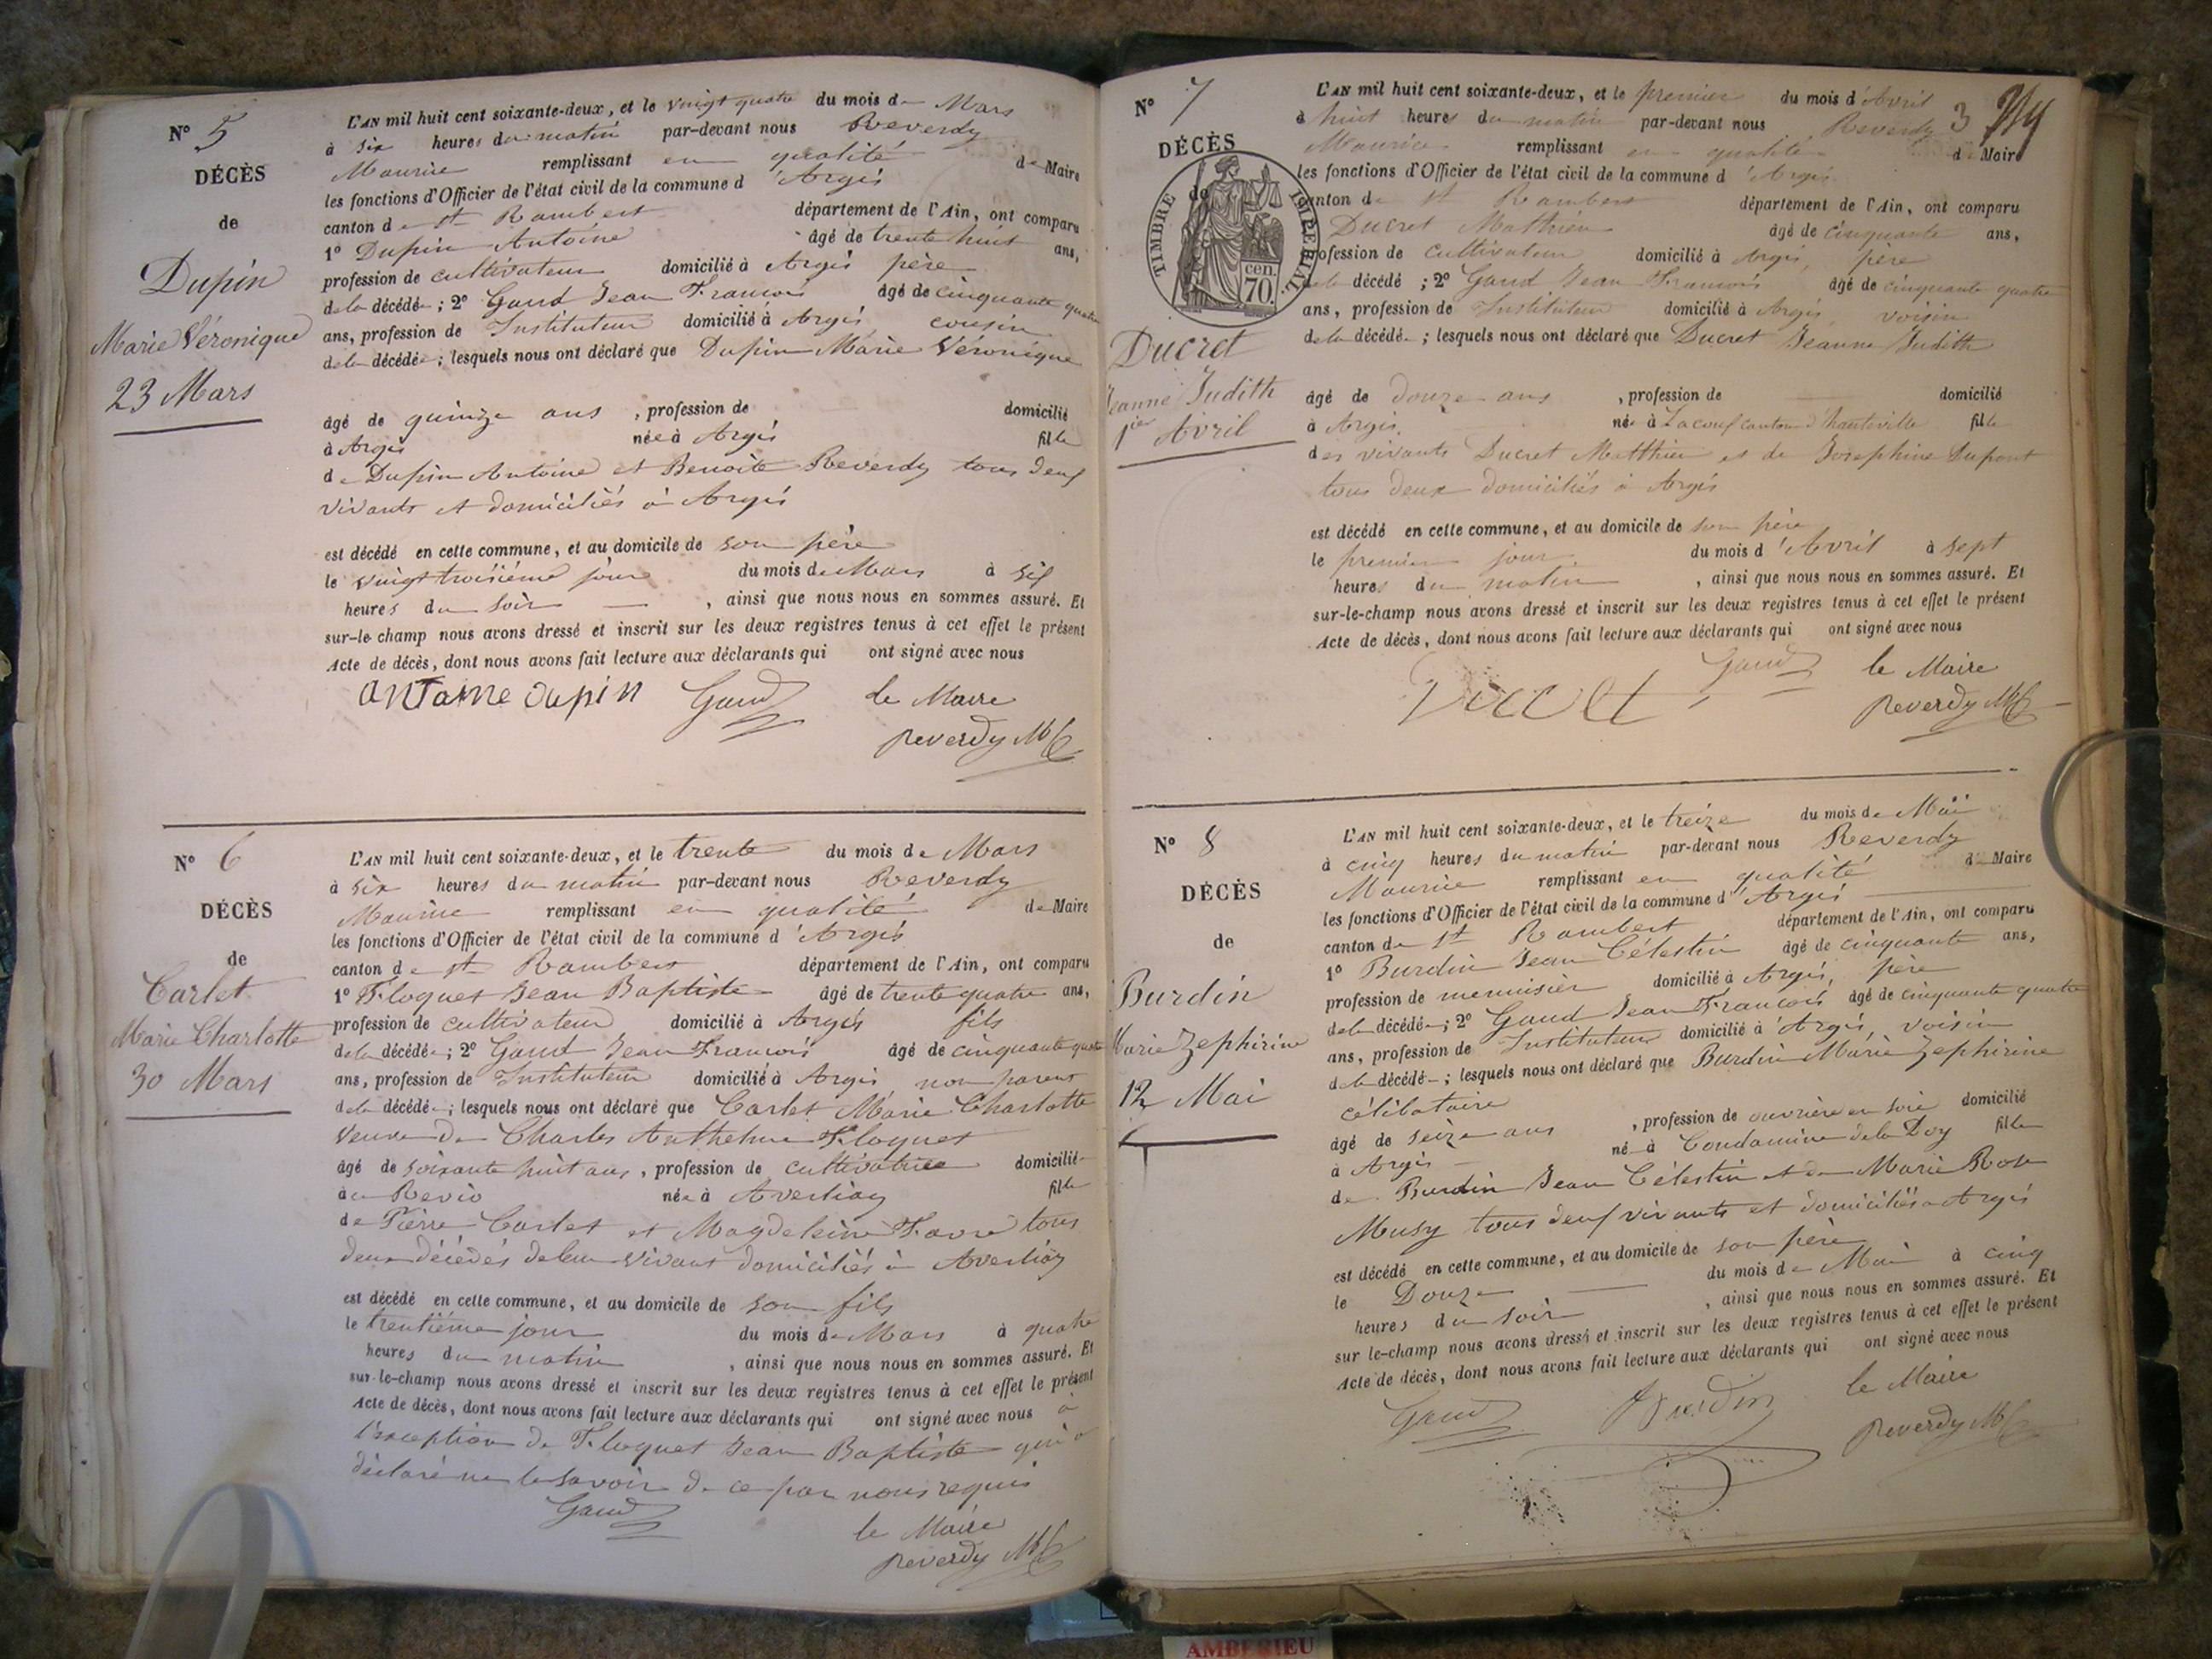 N° 5
DÉCÈS
de
Dupin
Marie Véronique
23 Mars
L'AN mil huit cent soixante-deux, et le vingt quatre du mois de Mars
à six heures du matin par-devant nous Reverdy
Maurice remplissant en qualité de Maire
les fonctions d'Officier de l'état civil de la commune d'Argis
canton de St Rambert département de l'Ain, ont comparu
1° Dupin Antoine âgé de trente huit ans,
profession de cultivateur domicilié à Argis père
de la décédée ; 2° Gaud Jean François âgé de cinquante quatre
ans, profession de Instituteur domicilié à Argis cousin
de la décédée ; lesquels nous ont déclaré que Dupin Marie Véronique
âgé de quinze ans , profession de domicilié
à Argis née à Argis fille
de Dupin Antoine et Benoite Reverdy tous deux
vivants et domiciliés à Argis
est décédé en cette commune, et au domicile de son père
le vingt troisième jour du mois de Mars à six
heures du soir , ainsi que nous nous en sommes assuré. Et
sur-le-champ nous avons dressé et inscrit sur les deux registres tenus à cet effet le présent
Acte de décès, dont nous avons fait lecture aux déclarants qui ont signé avec nous
antoine dupin Gaud le Maire
Reverdy
N° 6
DÉCÈS
de
Carlet
Marie Charlotte
30 Mars
L'AN mil huit cent soixante-deux, et le trente du mois de Mars
à six heures du matin par-devant nous Reverdy
Maurice remplissant en qualité de Maire
les fonctions d'Officier de l'état civil de la commune d'Argis
canton de St Rambert département de l'Ain, ont comparu
1° Floquet Jean Baptiste âgé de trente quatre ans,
profession de cultivateur domicilié à Argis fils
de la décédée ; 2° Gaud Jean François âgé de cinquante quatre
ans, profession de Instituteur domicilié à Argis non parent
de la décédée ; lesquels nous ont déclaré que Carlet Marie Charlotte
veuve de Charles Anthelme Floquet
âgé de soixante huit ans , profession de cultivatrice domicilié
au Revio née à Averliaz fille
de Pierre Carlet et Magdeleine Favre tous
deux décédés de leur vivant domiciliés à Averliaz
est décédé en cette commune, et au domicile de son fils
le trentième jour du mois de Mars à quatre
heures du matin , ainsi que nous nous en sommes assuré. Et
sur-le-champ nous avons dressé et inscrit sur les deux registres tenus à cet effet le présent
Acte de décès, dont nous avons fait lecture aux déclarants qui ont signé avec nous à
l'exception de Floquet Jean Baptiste qui a
déclaré ne le savoir de ce par nous requis
Gaud
le Maire
Reverdy
N° 7
DÉCÈS
de
TIMBRE IMPERIAL
70 cen.
Ducret
Jeanne Judith
1ier Avril
L'AN mil huit cent soixante-deux, et le premier du mois d'Avril
3
à huit heures du matin par-devant nous Reverdy
Maurice remplissant en qualité de Maire
les fonctions d'Officier de l'état civil de la commune d'Argis
canton de St Rambert département de l'Ain, ont comparu
Ducret Mathieu âgé de cinquante ans,
profession de cultivateur domicilié à Argis, père
de la décédé ; 2° Gaud Jean François âgé de cinquante quatre
ans, profession de Instituteur domicilié à Argis voisin
de la décédé ; lesquels nous ont déclaré que Ducret Jeanne Judith
âgé de douze ans , profession de domicilié
à Argis. née à Lacoux canton d'hauteville fille
des vivants Ducret Matthieu et de Josephine Dupont
tous deux domiciliés à Argis
est décédé en cette commune, et au domicile de son père
le premier jour du mois d'Avril à sept
heures du matin , ainsi que nous nous en sommes assuré. Et
sur-le-champ nous avons dressé et inscrit sur les deux registres tenus à cet effet le présent
Acte de décès, dont nous avons fait lecture aux déclarants qui ont signé avec nous
Ducret Gaud le Maire
Reverdy
N° 8
DÉCÈS
de
Burdin
Marie Zephirine
12 Mai
L'AN mil huit cent soixante-deux, et le treize du mois de Mai
à cinq heures du matin par-devant nous Reverdy
Maurice remplissant en qualité de Maire
les fonctions d'Officier de l'état civil de la commune d'Argis
canton de St Rambert département de l'Ain, ont comparu
1° Burdin Jean Célestin âgé de cinquante ans,
profession de menuisier domicilié à Argis, père
de la décédée ; 2° Gaud Jean François âgé de cinquante quatre
ans, profession de Instituteur domicilié à Argis, voisin
de la décédé ; lesquels nous ont déclaré que Burdin Marie Zephirine
célibataire
âgé de seize ans , profession de ouvrière en soie domicilié
à Argis né à Condamine de la Doy fille
de Burdin Jean Célestin et de Marie Rose
Musy tous deux vivants et domiciliés à Argis
est décédé en cette commune, et au domicile de son père
le Douze du mois de Mai à cinq
heures du soir , ainsi que nous nous en sommes assuré. Et
sur le-champ nous avons dressé et inscrit sur les deux registres tenus à cet effet le présent
Acte de décès, dont nous avons fait lecture aux déclarants qui ont signé avec nous
Gaud Burdin le Maire
Reverdy
AMBERIEU